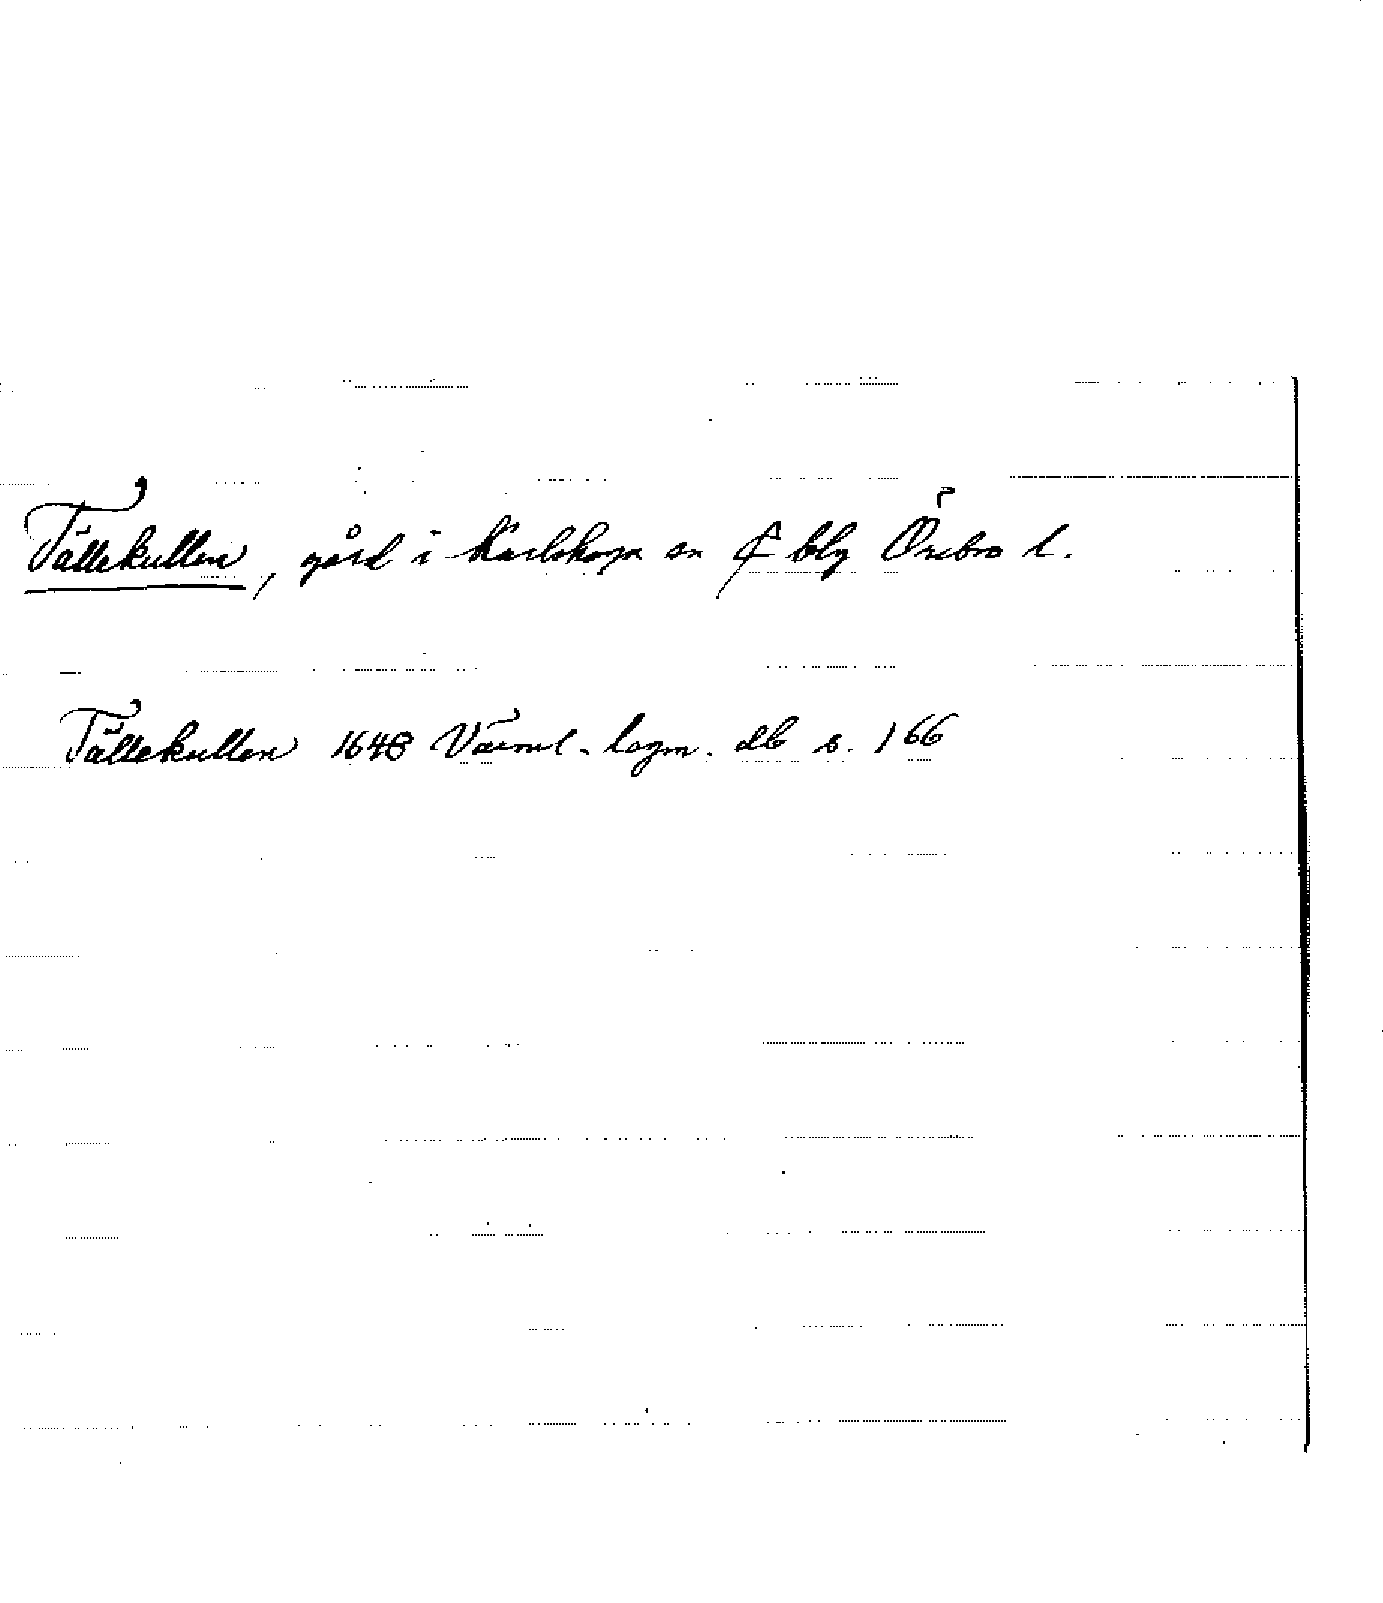 Tällekullen, gård i Karlskoga sn & blg Örebro l.
Tällekullen 1648 Värml. lagm. db s. 166